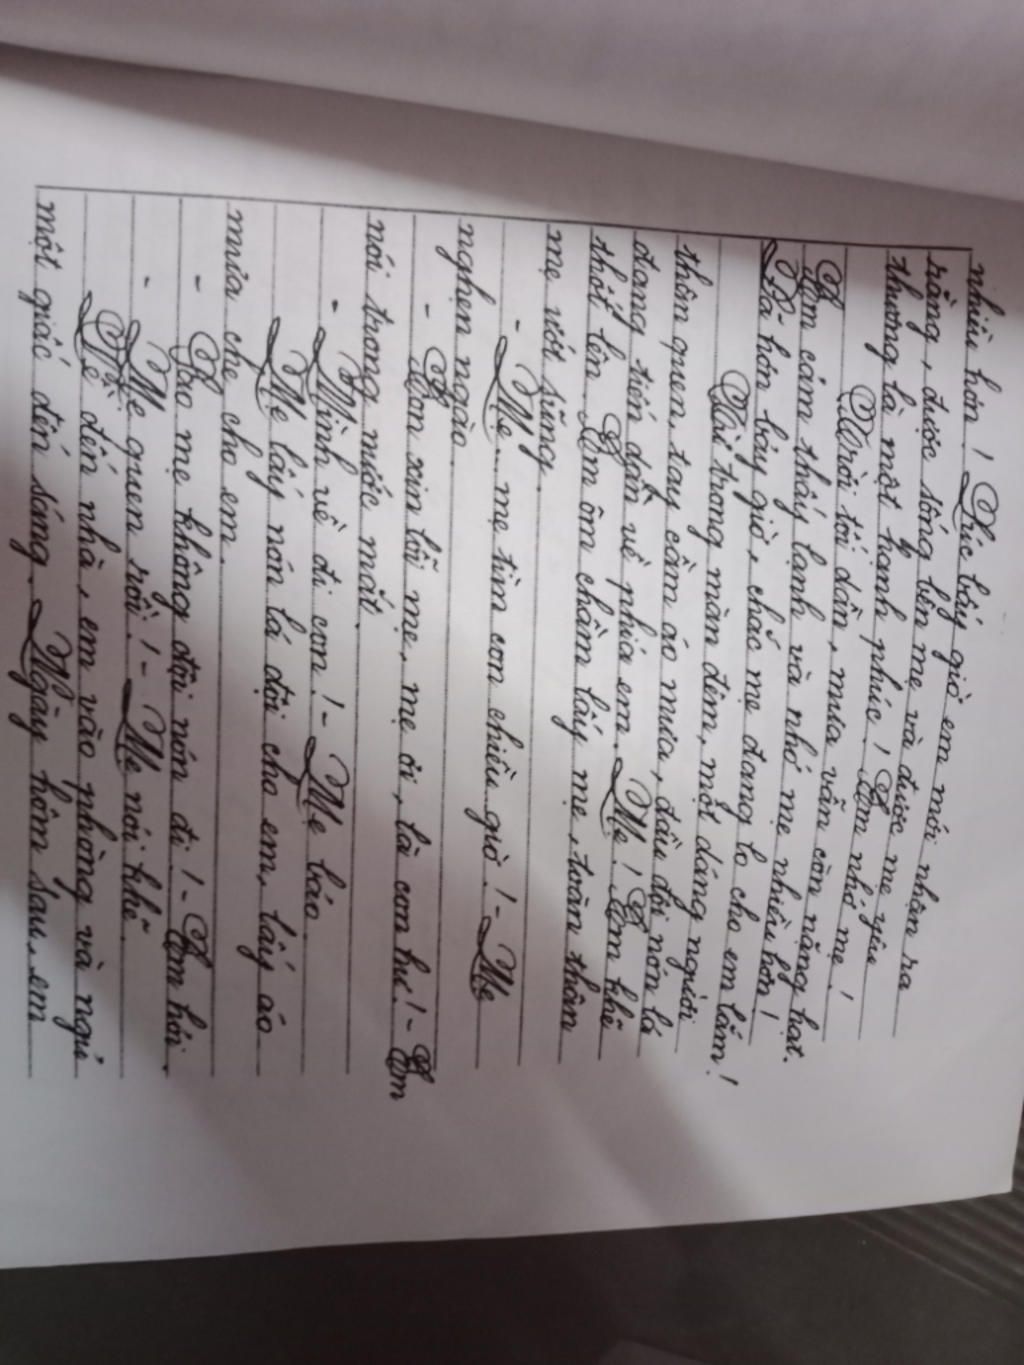 nhiều hơn! Lúc bấy giờ em mới nhận ra
rằng, được sống bên mẹ và được mẹ yêu
thương là một hạnh phúc! Em nhớ mẹ!
Trời tối dần, mưa vẫn còn nặng hạt.
Em cảm thấy lạnh và nhớ mẹ nhiều hơn!
Đã hơn bảy giờ, chắc mẹ đang lo cho em lắm!
Tôi trong màn đêm, một dáng người
thân quen, tay cầm áo mưa, đầu đội nón lá
đang tiến dần về phía em. Mẹ! Em khẽ
thốt lên. Em ôm chầm lấy mẹ, toàn thân
mẹ ướt sũng.
- Mẹ... mẹ tìm con chiều giờ! - Mẹ
nghẹn ngào.
- Con xin lỗi mẹ, mẹ ơi, là con hư! - Em
nói trong nước mắt.
- Mình về đi con! - Mẹ bảo.
Mẹ lấy nón lá đội cho em, lấy áo
mưa che cho em.
- Sao mẹ không đội nón đi! - Em hỏi.
- Mẹ quen rồi! - Mẹ nói khẽ.
Về đến nhà, em vào phòng và ngủ
một giấc đến sáng. Ngày hôm sau, em